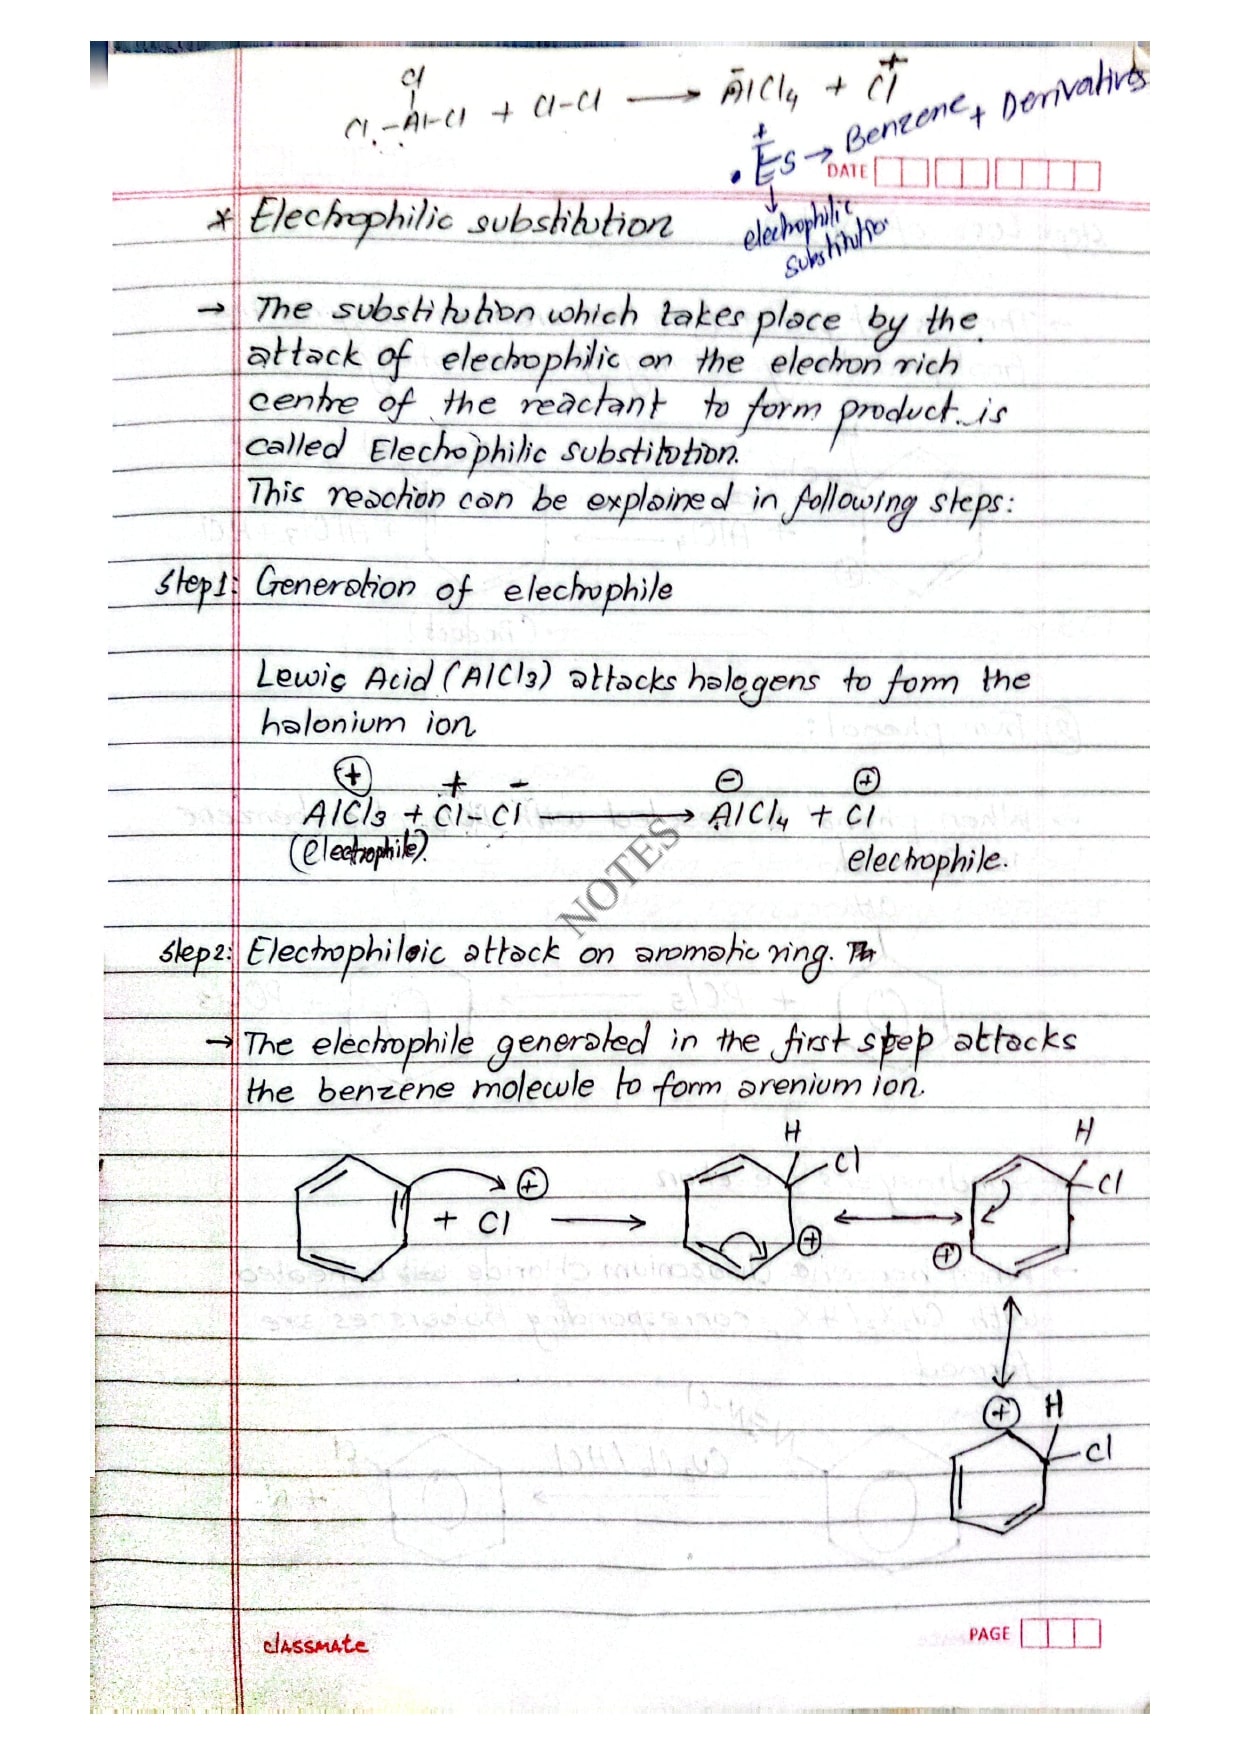 Cl
Cl-Al-Cl + Cl-Cl ⟶ ĀlCl4 + Cl+
+
Es → Benzene + Derivatives
DATE
↓
electrophilic
substitution
* Electrophilic substitution
→ The substitution which takes place by the
attack of electrophilic on the electron rich
centre of the reactant to form product is
called Electrophilic substitution.
This reaction can be explained in following steps:
Step1: Generation of electrophile
Lewis Acid (AlCl3) attacks halogens to form the
halonium ion
⊕ + - ⊖ ⊕
AlCl3 + Cl-Cl ⟶ AlCl4 + Cl
(electrophile). electrophile.
NOTES
Step2: Electrophiloic attack on aromatic ring.
→ The electrophile generated in the first step attacks
the benzene molecule to form arenium ion.
H H
⊕ Cl Cl
+ Cl ⟶ ⊕ ⟷ ⊕
⊕ H
Cl
classmate
PAGE